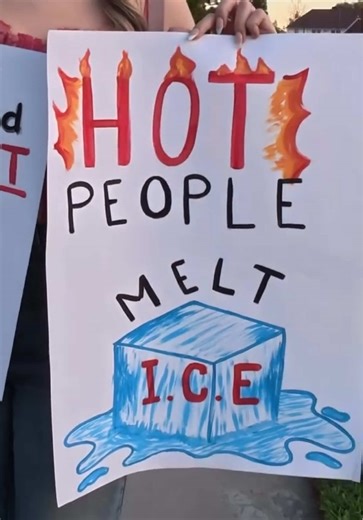 HOT
PEOPLE
MELT
I.C.E
d
T